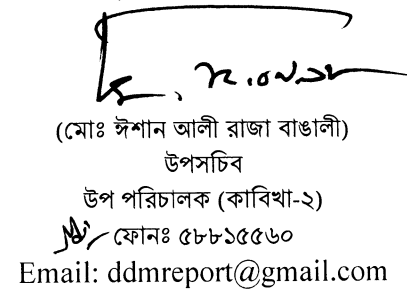 (মোঃ ঈশান আলী রাজা বাঙালী)
উপসচিব
উপ পরিচালক (কাবিখা-২)
ফোনঃ ৫৮৮১৫৫৬০
Email: ddmreport@gmail.com